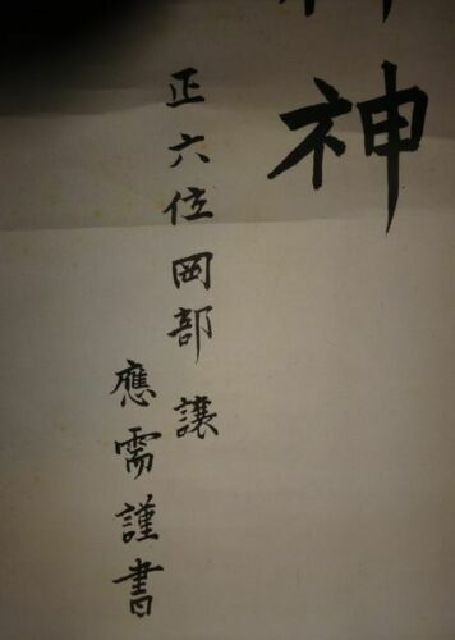 神
正六位岡部譲
應需謹書